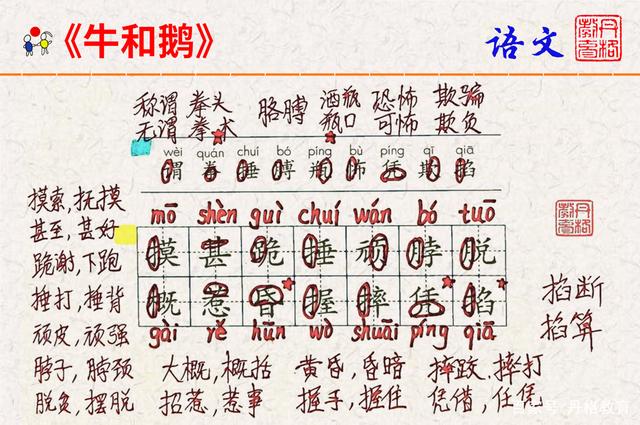 《牛和鹅》
语文
丹格教育
称谓 拳头 胳膊 酒瓶 恐怖 欺骗
无谓 拳术 瓶口 可怖 欺负
wèi quán chuí bó píng bù píng qī qiā
谓 拳 捶 膊 瓶 怖 凭 欺 掐
mō shèn guì chuí wán bó tuō
摸 甚 跪 捶 顽 脖 脱
概 惹 昏 握 摔 凭 掐
gài rě hūn wò shuāi píng qiā
摸索,抚摸
甚至,甚好
跪谢,下跪
捶打,捶背
顽皮,顽强
脖子,脖颈
摆脱
大概,概括
招惹,惹事
黄昏,昏暗
握手,握住
摔跤,摔打
凭借,任凭
丹格教育
掐断
掐算
百家号/丹格教育